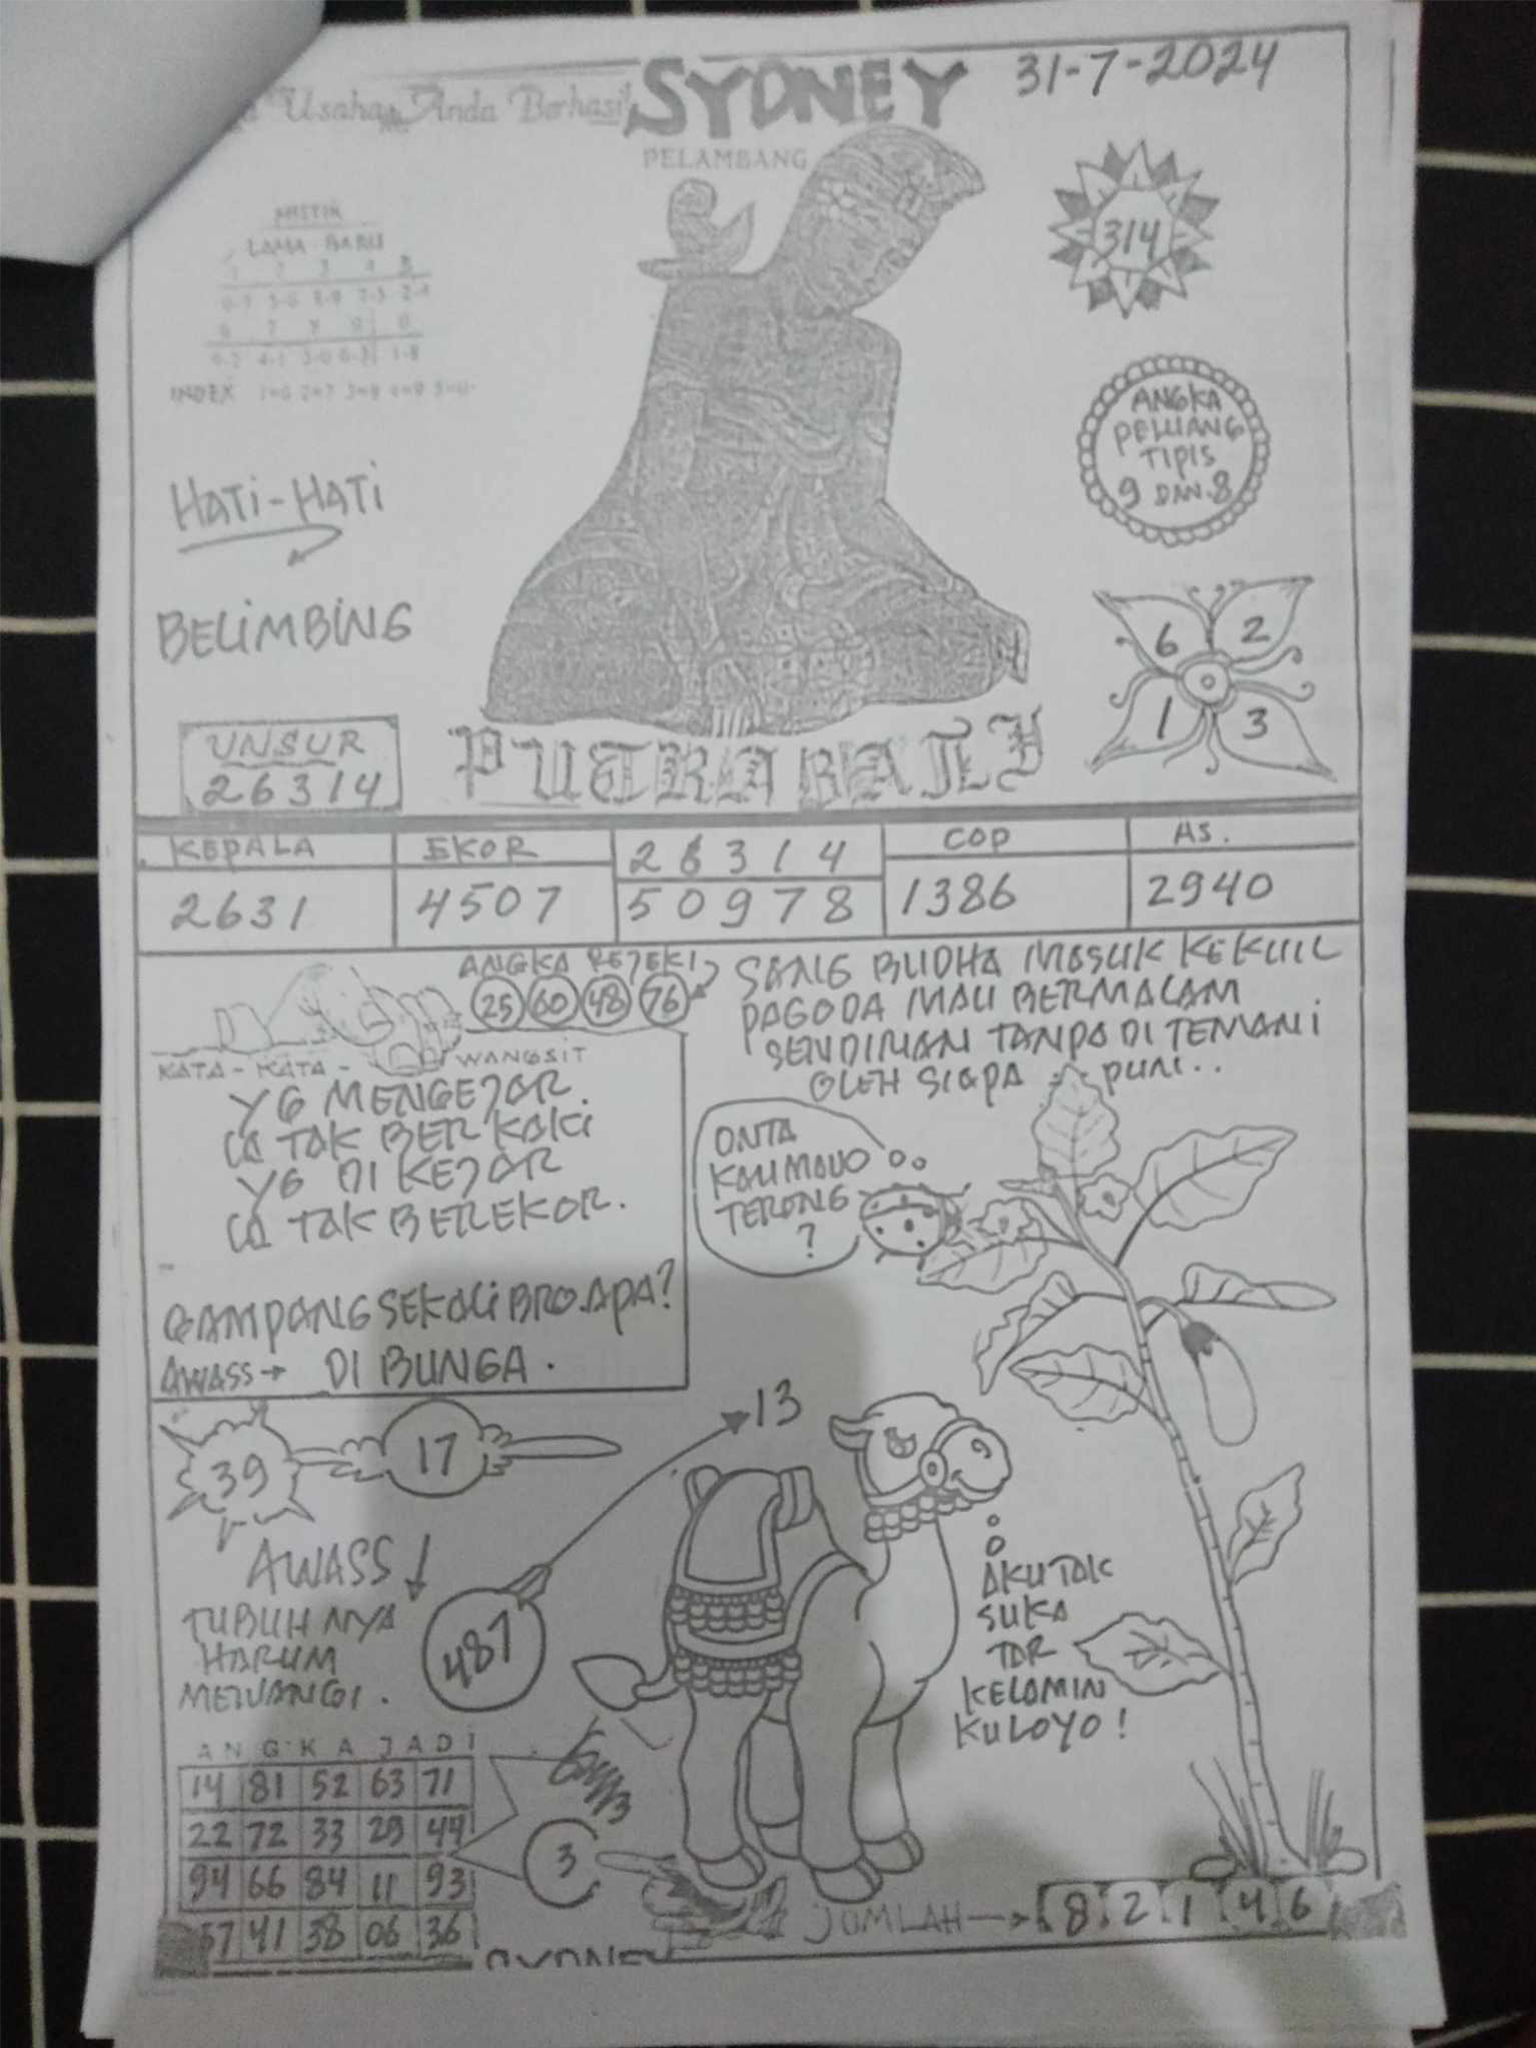 Usaha Anda Berhasil
SYDNEY
31-7-2024
PELAMBANG
MISTIK
LAMA - BARU
INDEX
314
ANGKA
PELUANG
TIPIS
9 DAN 8
HATI-HATI
BELIMBING
6 2
1 3
UNSUR
26314
PUTRA BALI
KEPALA EKOR 26314 COP AS.
2631 4507 50978 1386 2940
ANGKA REJEKI
25 60 48 76
SANG BUDHA MASUK KEKUIL
PAGODA MAU BERMALAM
SENDIRIAN TANPA DI TEMANI
OLEH SIAPA PUN..
KATA - KATA - WANGSIT
YG MENGEJAR
TAK BERKAKI
YG DI KEJAR
TAK BEREKOR.
GAMPANG SEKALI BRO.APA?
AWASS→ DI BUNGA.
ONTA
KAU MAUO
TERONG
?
39 17
13
AWASS
TUBUHNYA
HARUM
MEWANGI.
487
AKU TAK
SUKA
TAR
KELAMIN
KU LOYO!
ANGKA JADI
14 81 52 63 71
22 72 33 29 44
94 66 84 11 93
57 41 38 06 36
3
JUMLAH→ 8 2 1 4 6
SYDNEY